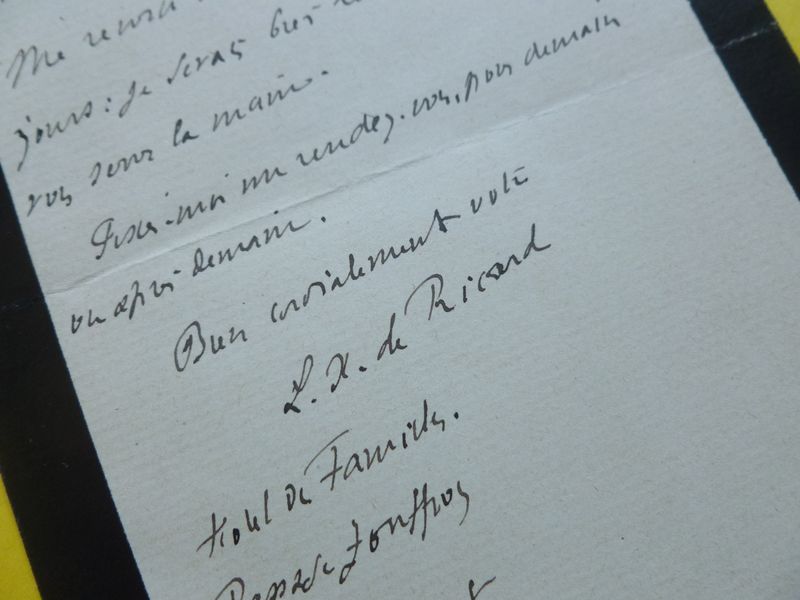 Me
jours: je serais bien
vous serrer la main.
Fixez-moi un rendez-vous, pour demain
ou après demain.
Bien cordialement votre
L. X. de Ricard
Hotel des Familles.
Passage Jouffroy